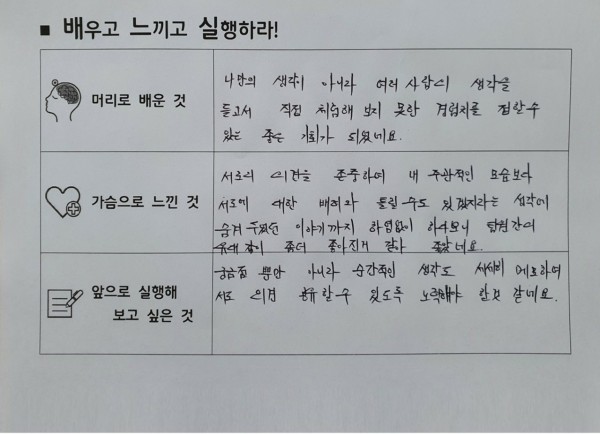 ■ 배우고 느끼고 실행하라!
머리로 배운 것
나만의 생각이 아니라 여러 사람의 생각을
듣고서 직접 처험해 보지 못한 경험치를 접할수
있는 좋은 기회가 되었네요.
가슴으로 느낀 것
서로의 의견을 존중하며 내 주관적인 모습보다
서로에 대한 배려와 틀릴수도 있겠지라는 생각에
숨겨 두었던 이야기까지 하염없이 하다보니 팀원간에
유대감이 좀더 좋아진거 같아 좋았네요.
앞으로 실행해
보고 싶은 것
궁금점 뿐만 아니라 순간적인 생각도 세세히 메모하여
서로 의견 공유할수 있도록 노력해야 할것 같네요.